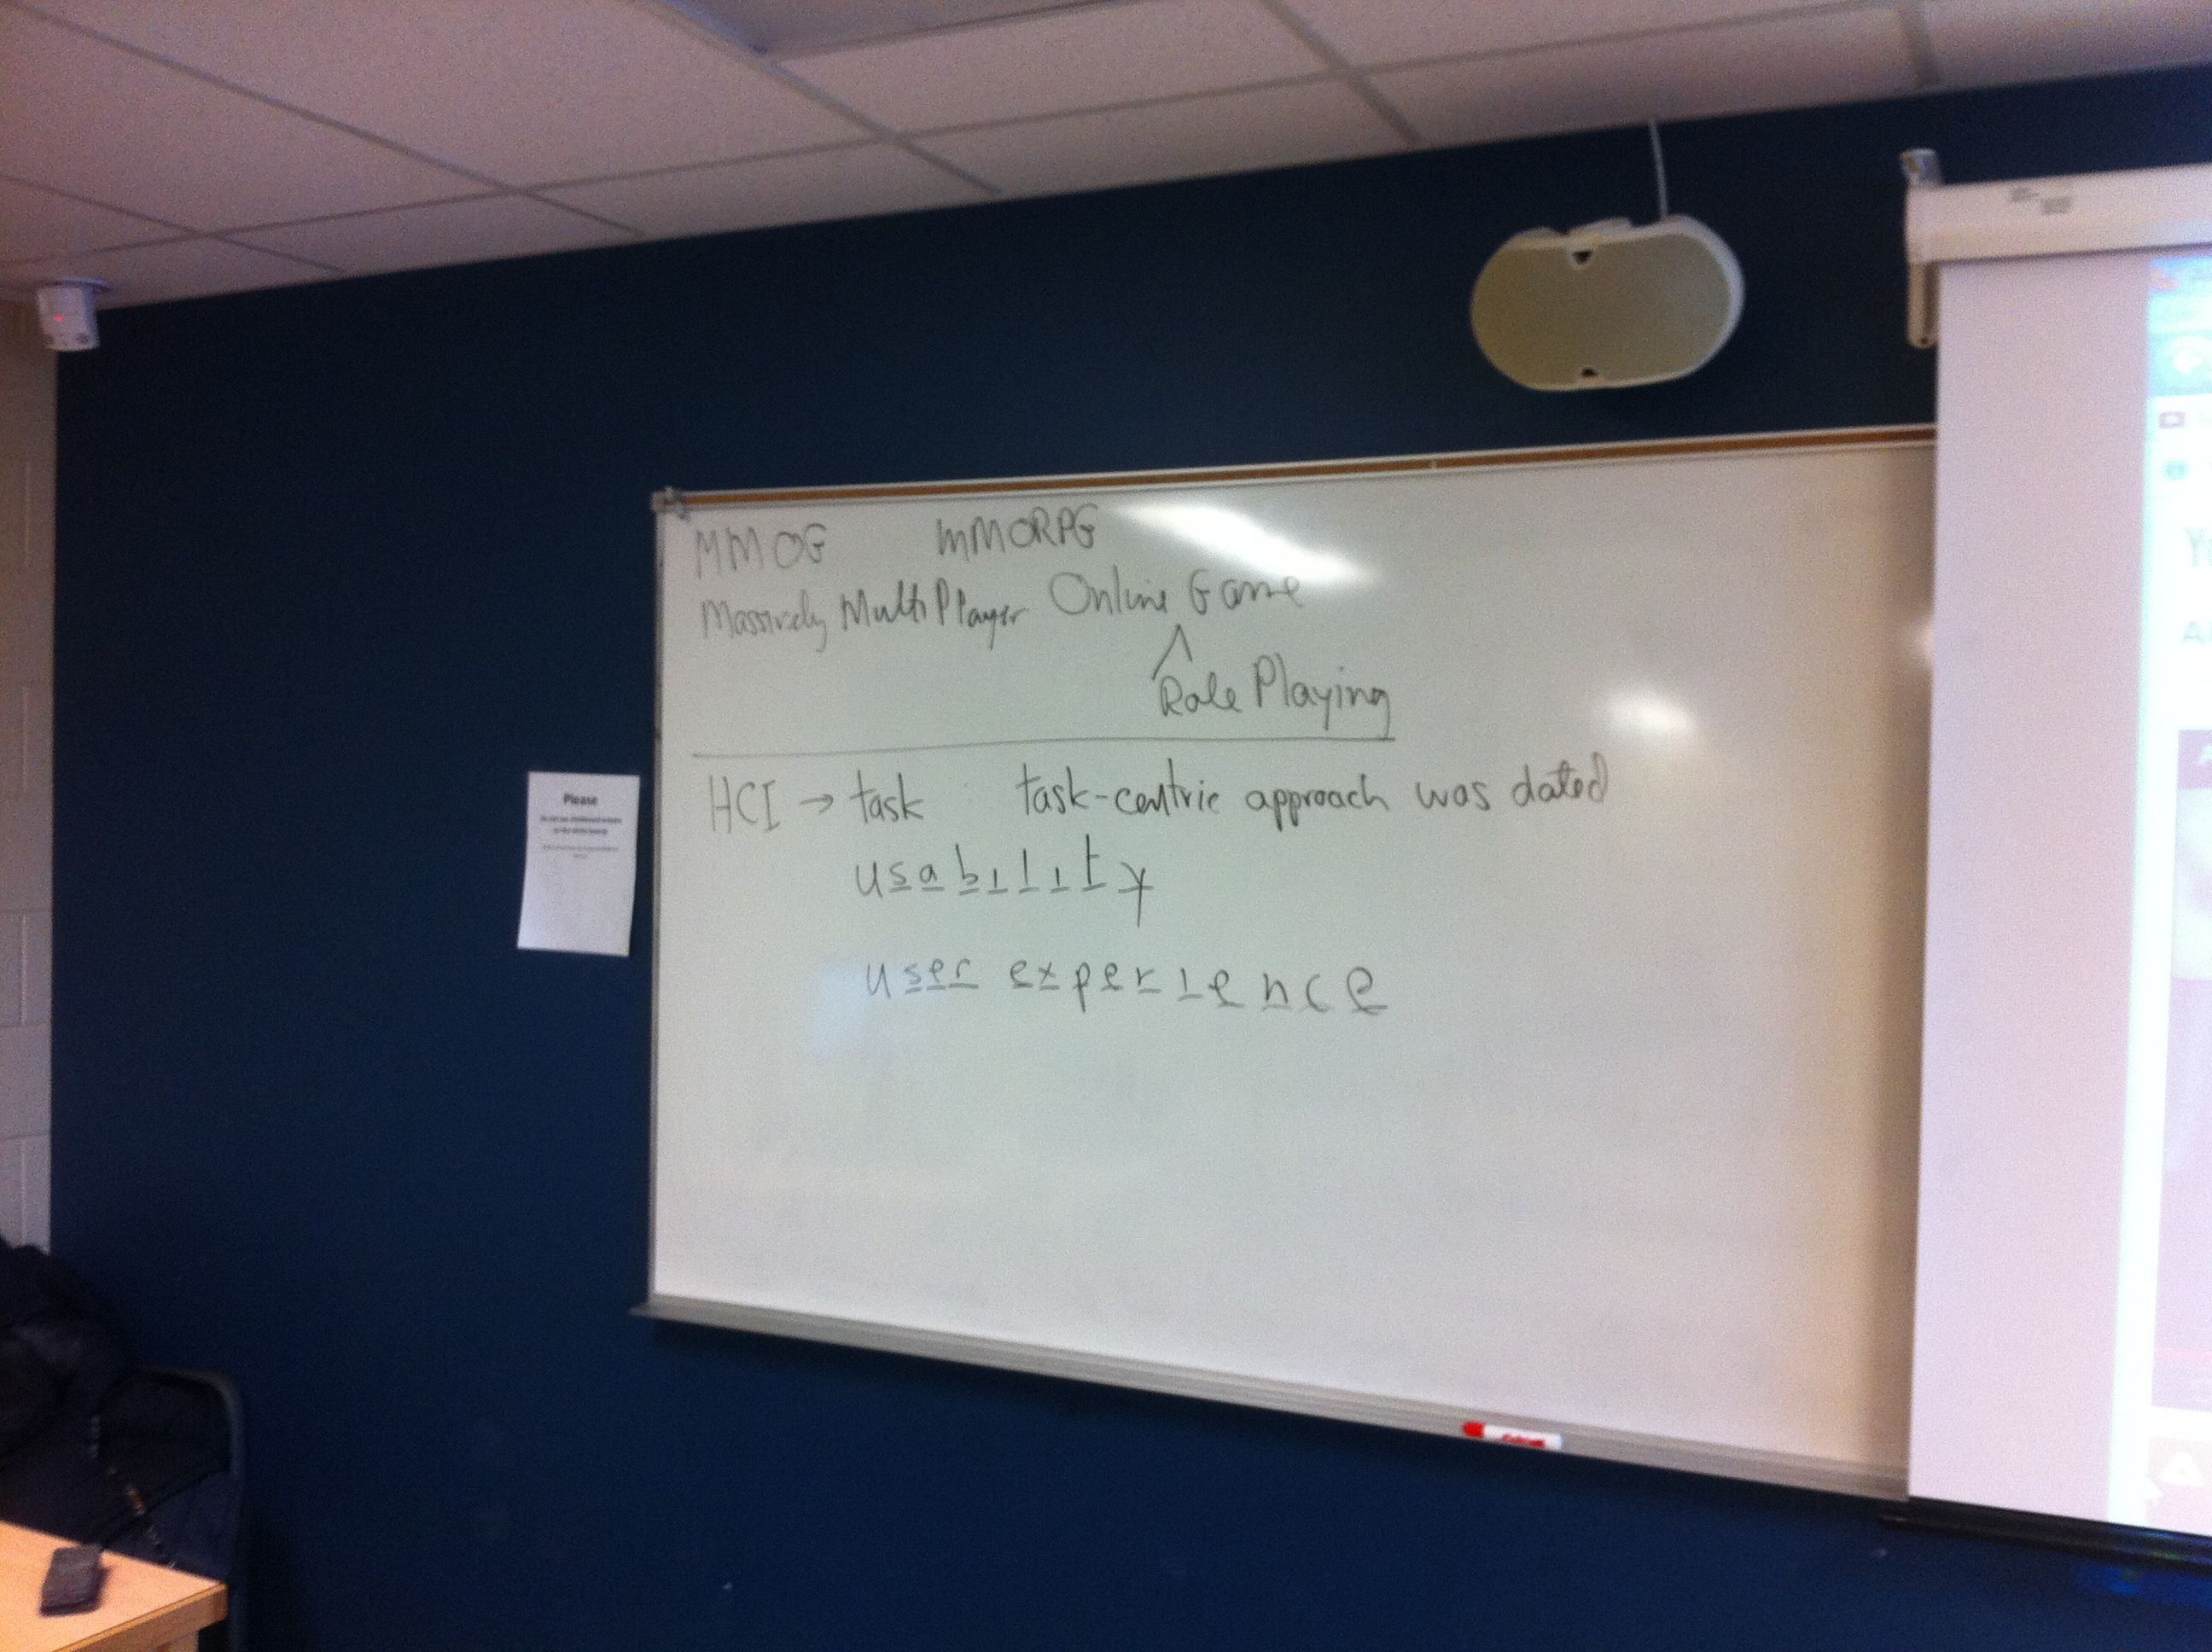 MMOG mMORPG
Massively MultiPlayer Online Game
^
Role Playing
HCI → task task-centric approach was dated
usability
user experience
Please